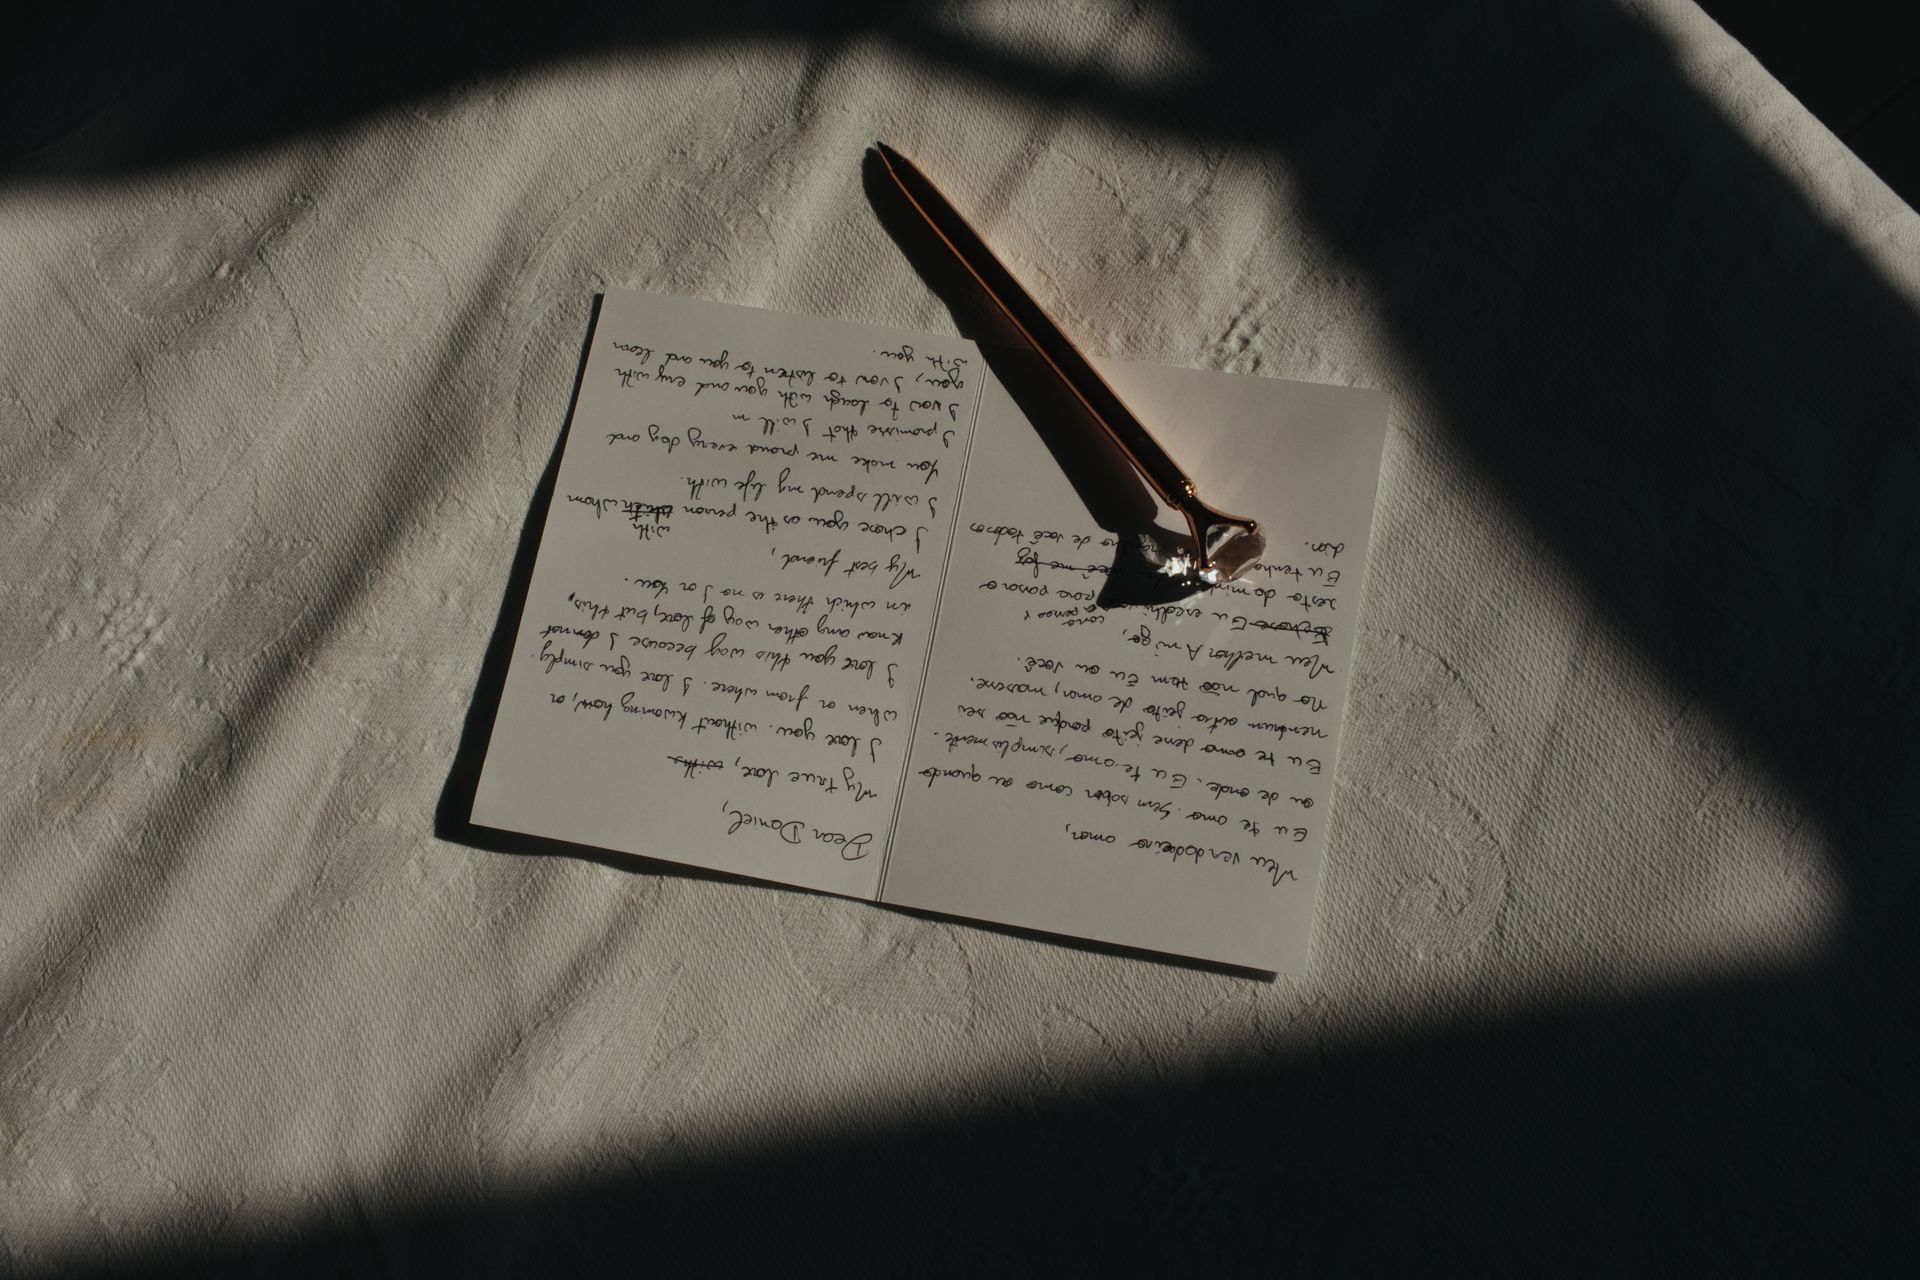 Meu verdadeiro amor,
Eu te amo. Sem saber como ou quando
ou de onde. Eu te amo, simplesmente.
Eu te amo desse jeito porque não sei
nenhum outro jeito de amar,
No qual não tem Eu ou você.
Meu melhor Amigo,
Eu escolhi para passar o
resto da minha
Eu tenho orgulho de você todos os
dia.
Dear Daniel,
My true love, with
I love you. without kwoning how, or
when or from where. I love you simply.
I love you this way because I donnot
know any other way of love, but this,
in which there is no I or You.
My best friend,
with
I chose you as the person which whom
I will spend my life with.
You make me proud every day and
I promisse that I will m
I vow to laugh with you and cry with
you, I vow to listen to you and learn
with you.